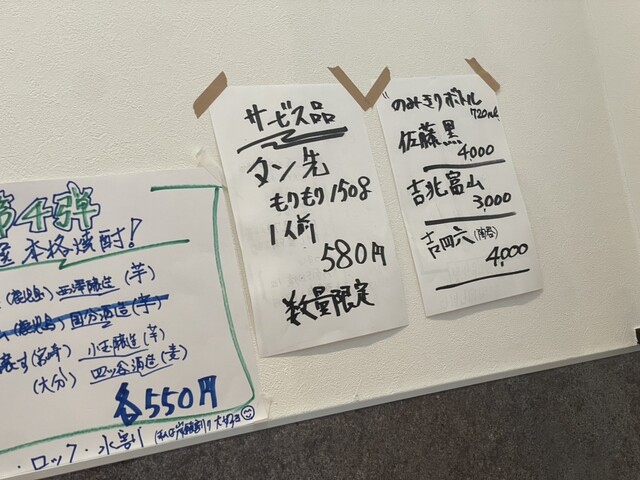 第4弾
本格焼酎!
(鹿児島) 西澤醸造 (芋)
(鹿児島) 国分酒造 (芋)
(宮崎) 小玉醸造 (芋)
(大分) 四ッ谷酒造 (麦)
各550円
・ロック・水割り
サービス品
タン先
もりもり150g
1人前
580円
数量限定
のみきりボトル
720ml
佐藤黒
4000
吉兆富山
3,000
吉四六(陶器)
4,000